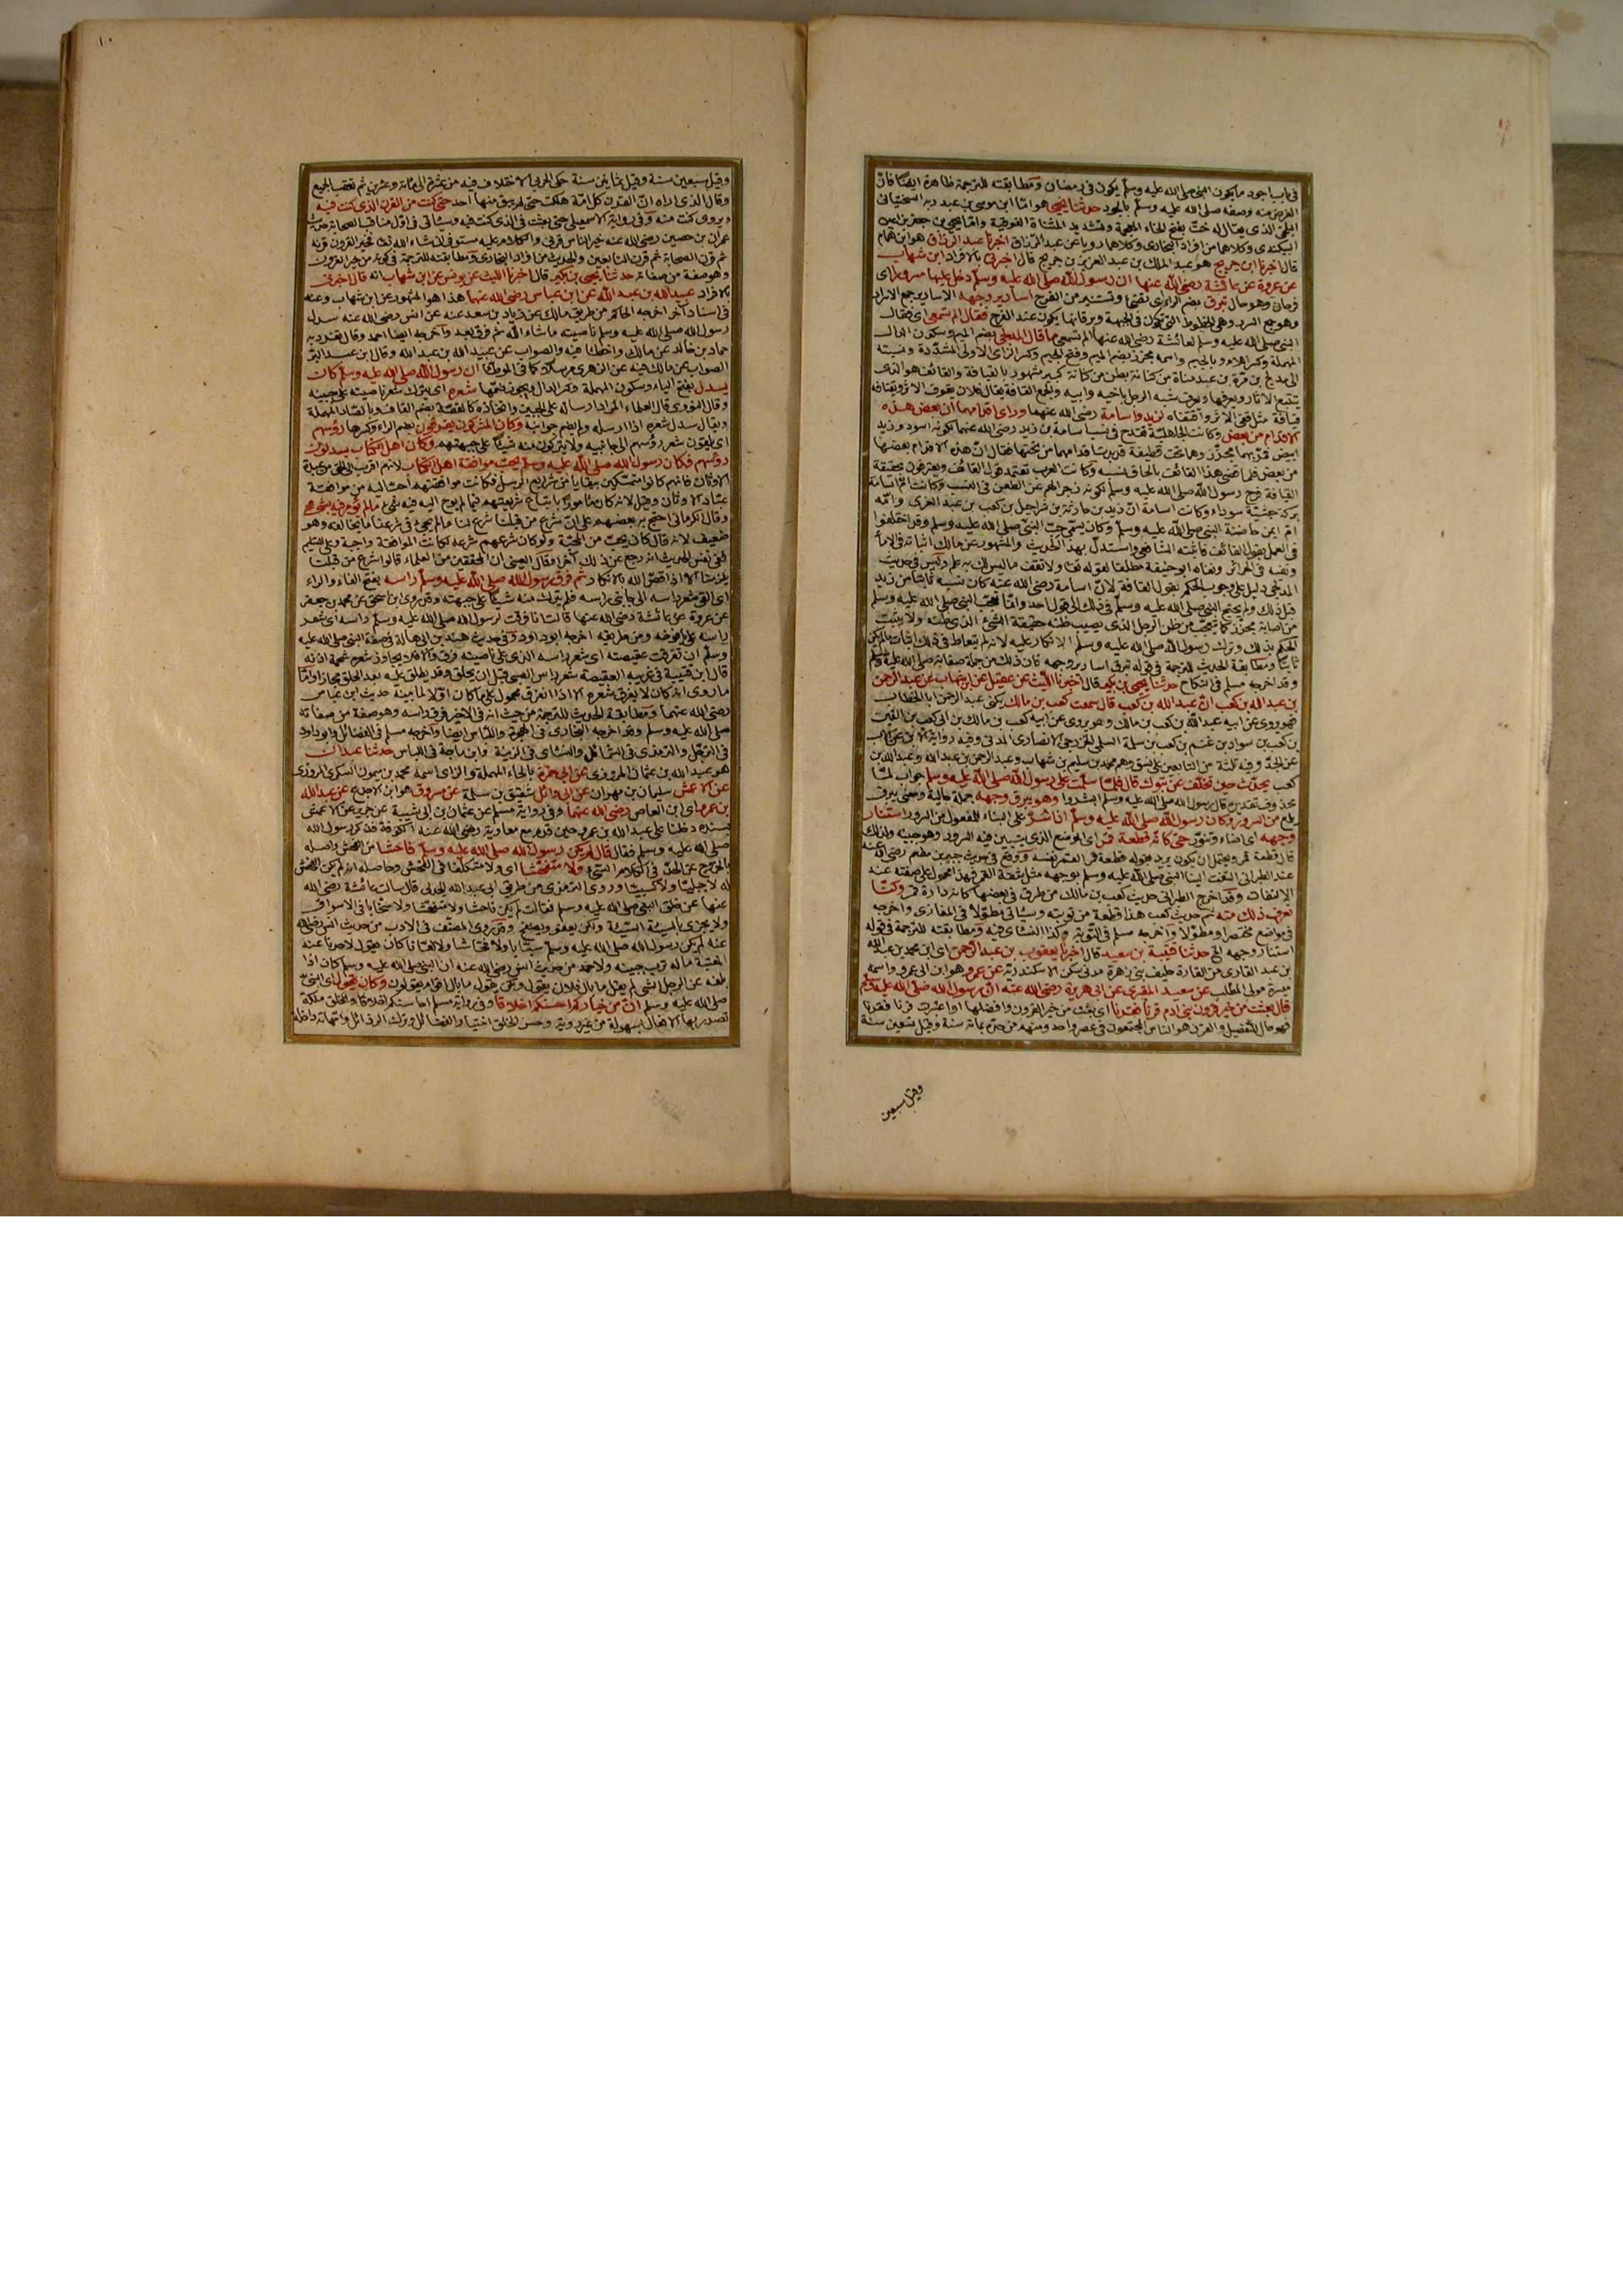 في باب اجود ما يكون النبي صلى الله عليه وسلم يكون في رمضان ومطابقته للترجمة ظاهرة ايضا فان
الغرض منه وصفه صلى الله عليه وسلم بالجود حدثنا يحيى هو اما ابن موسى بن عبد ربه السختياني
البلخي الذي يقال له خت بفتح الخاء المعجمة وتشديد المثناة الفوقية واما يحيى بن جعفر بن اعين
البيكندي وكلاهما من افراد البخاري وكلاهما رويا عن عبد الرزاق اخبرنا عبد الرزاق هو ابن همام
قال اخبرنا ابن جريج هو عبد الملك بن عبد العزيز بن جريج قال اخبرني بالافراد ابن شهاب
عن عروة عن عائشة رضي الله عنها ان رسول الله صلى الله عليه وسلم دخل عليها مسرورا اي
فرحان وهو حال تبرق بضم الراء اي تضئ وتستنير من الفرح اسارير وجهه الاسارير جمع الاسرار
وهو جمع السرر وهي الخطوط التي تكون في الجبهة وبرقانها يكون عند الفرح فقال الم تسمعي اي فقال
النبي صلى الله عليه وسلم لعائشة رضي الله عنها الم تسمعي ما قال المدلجي بضم الميم وسكون الدال
المهملة وكسر اللام وبالجيم واسمه مجزز بضم الميم وفتح الجيم وكسر الزاي الاولى المشددة ونسبته
الى مدلج بن مرة بن عبد مناة من كنانة بطن من كنانة كبير مشهور بالقيافة والقائف هو الذي
يتتبع الاثار ويعرفها ويعرف شبه الرجل باخيه وابيه والجمع القافة يقال فلان يقوف الاثر ويقتافه
قيافة مثل قفى الاثر واقتفاه لزيد واسامة رضي الله عنهما وراى اقدامهما ان بعض هذه
الاقدام من بعض وكانت الجاهلية تقدح في نسب اسامة بن زيد رضي الله عنهما لكونه اسود وزيد
ابيض فمر بهما مجزز وهما تحت قطيفة قد بدت اقدامهما من تحتها فقال ان هذه الاقدام بعضها
من بعض فلما قضى هذا القائف بالحاق نسبه وكانت العرب تعتمد قول القائف ويعترفون بحقيقة
القيافة فرح رسول الله صلى الله عليه وسلم لكونه زجرا لهم عن الطعن في النسب وكانت ام اسامة
بركة حبشية سوداء وكانت اسامة ان زيد بن حارثة بن شراحيل بن كعب بن عبد العزى وامه
ام ايمن حاضنة النبي صلى الله عليه وسلم وكان يسمى حب النبي صلى الله عليه وسلم وقد اختلفوا
في العمل بقول القائف فاثبته الشافعي واستدل بهذا الحديث والمشهور عن مالك اثباته في الاماء
ونفيه في الحرائر ونفاه ابو حنيفة مطلقا لقوله تعالى ولا تقف ما ليس لك به علم وليس في حديث
المدلجي دليل على وجوب الحكم بقول القافة لان اسامة رضي الله عنه كان نسبه ثابتا من زيد
قبل ذلك ولم يحتج النبي صلى الله عليه وسلم في ذلك الى قول احد وانما تعجب النبي صلى الله عليه وسلم
من اصابة مجزز كما يتعجب من ظن الرجل الذي يصيب ظنه حقيقة الشئ الذي ظنه ولا يثبت
الحكم بذلك وترك رسول الله صلى الله عليه وسلم الانكار عليه لانه لم يتعاط في ذلك اثبات ما لم يكن
ثابتا ومطابقة الحديث للترجمة في قوله تبرق اسارير وجهه فان ذلك من جملة صفاته صلى الله عليه وسلم
وقد اخرجه مسلم في النكاح حدثنا يحيى بن بكير قال اخبرنا الليث عن عقيل عن ابن شهاب عن عبد الرحمن
بن عبد الله بن كعب ان عبد الله بن كعب قال سمعت كعب بن مالك يكنى عبد الرحمن ابا الخطاب
فهو يروي عن ابيه عبد الله بن كعب بن مالك وهو يروي عن ابيه كعب بن مالك بن ابي كعب بن القين
بن كعب بن سواد بن غنم بن كعب بن سلمة السلمي الخزرجي الانصاري المدني وفيه رواية الابن عن الاب
عن الجد وفيه ثلثة من التابعين على نسق وهم محمد بن مسلم بن شهاب وعبد الرحمن بن عبد الله وعبد الله بن
كعب يحدث حين تخلف عن تبوك قال فلما سلمت على رسول الله صلى الله عليه وسلم جواب لما
محذوف تقديره قال رسول الله صلى الله عليه وسلم ابشر وهو يبرق وجهه جملة حالية ومعنى يبرق
يلمع من السرور وكان رسول الله صلى الله عليه وسلم اذا سر على البناء للمفعول من السرور استنار
وجهه اي اضاء وتنور حتى كانه قطعة قمر اي الموضع الذي يتبين فيه السرور وهو جبينه ولذلك
قال قطعة قمر ويحتمل ان يكون يريد بقوله قطعة قمر القمر نفسه ووقع في حديث جبير بن مطعم رضي الله عنه
عند الطبراني التفت الينا النبي صلى الله عليه وسلم بوجهه مثل شقة القمر فهذا محمول على صفته عند
الالتفات وقد اخرج الطبراني حديث كعب بن مالك من طرق في بعضها كانه دارة قمر وكنا
نعرف ذلك منه ثم حديث كعب هذا قطعة من توبته وسياتي مطولا في المغازي واخرجه
في مواضع مختصرا ومطولا واخرجه مسلم في التوبة وكذا النسائي فيه ومطابقته للترجمة في قوله
استنار وجهه الخ حدثنا قتيبة بن سعيد قال اخبرنا يعقوب بن عبد الرحمن اي ابن محمد بن عبد الله
بن عبد القاري من القارة حليف بني زهرة مدني سكن الاسكندرية عن عمرو هو ابن ابي عمرو واسمه
ميسرة مولى المطلب عن سعيد المقبري عن ابي هريرة رضي الله عنه ان رسول الله صلى الله عليه وسلم
قال بعثت من خير قرون بني ادم قرنا فقرنا اي بعثت من خير القرون وافضلها اذا اعتبرت قرنا فقرنا
فهو حال للتفضيل والقرن هو الناس المجتمعون في عصر واحد ومنهم من حده بمائة سنة وقيل بتسعين سنة
وقيل سبعين
١٠
وقيل سبعين سنة وقيل بثمانين سنة حكى الحربي الاختلاف فيه من عشرة الى مائة وعشرين ثم تعقب الجميع
وقال الذي اراه ان القرن كل امة هلكت حتى لم يبق منها احد حتى كنت من القرن الذي كنت فيه
ويروى كنت منه وفي رواية الاسمعيلي حتى بعثت في الذي كنت فيه وسياتي في اول مناقب الصحابة من حديث
عمران بن حصين رضي الله عنه خير الناس قرني والكلام عليه مستوفى ان شاء الله تعالى فخير القرون قرنه
ثم قرن الصحابة ثم قرن التابعين والحديث من افراد البخاري ومطابقته للترجمة في كونه من خير القرون
وهو صفة من صفاته حدثنا يحيى بن بكير قال اخبرنا الليث عن يونس عن ابن شهاب انه قال اخبرني
بالافراد عبيد الله بن عبد الله عن ابن عباس رضي الله عنهما هذا هو المشهور عن ابن شهاب وعنه
في اسناد آخر اخرجه الحاكم من طريق مالك عن زياد بن سعد عنه عن انس رضي الله عنه سدل
رسول الله صلى الله عليه وسلم ناصيته ما شاء الله ثم فرق بعد واخرجه ايضا احمد وقال تفرد به
حماد بن خالد عن مالك واخطأ فيه والصواب عن عبيد الله بن عبد الله وقال ابن عبد البر
الصواب عن مالك فيه عن الزهري مرسلا كما في الموطأ ان رسول الله صلى الله عليه وسلم كان
يسدل بفتح الياء وسكون المهملة وكسر الدال ويجوز ضمها شعره اي يترك شعر ناصيته على جبينه
وقال النووي قال العلماء المراد ارساله على الجبين واتخاذه كالقصة بضم القاف وبالصاد المهملة
ويقال سدل شعره اذا ارسله ولم يضم جوانبه وكان المشركون يفرقون بضم الراء وكسرها رؤسهم
اي يلقون شعر رؤسهم الى جانبيه ولا يتركون منه شيئا على جبهتهم وكان اهل الكتاب يسدلون
رؤسهم فكان رسول الله صلى الله عليه وسلم يحب موافقة اهل الكتاب لانهم اقرب الى الحق من عبدة
الاوثان فانهم كانوا متمسكين ببقايا من شرايع الرسل فكانت موافقتهم احب اليه من موافقة
عباد الاوثان وقيل لانه كان مأمورا باتباع شريعتهم فيما لم يوح اليه فيه شئ ما لم يؤمر فيه بشئ
وقال الكرماني احتج به بعضهم على ان شرع من قبلنا شرع لنا ما لم يجئ في شرعنا ما يخالفه وهو
ضعيف لانه قال كان يحب من المحبة ولو كان شرعهم شرعه لكانت الموافقة واجبة وعلى التسليم
ففي نفس الحديث انه رجع عن ذلك آخرا وقال العيني ان المحققين من العلماء قالوا شرع من قبلنا
يلزمنا الا اذا قص الله بالانكار ثم فرق رسول الله صلى الله عليه وسلم راسه بفتح الفاء والراء
اي القى شعر راسه الى جانبي راسه فلم يترك منه شيئا على جبهته وقد روى ابن اسحق عن محمد بن جعفر
عن عروة عن عائشة رضي الله عنها قالت انا فرقت لرسول الله صلى الله عليه وسلم راسه اي شعر
راسه على يافوخه ومن طريقه اخرجه ابو داود وفي حديث هند بن ابي هالة في صفة النبي صلى الله عليه
وسلم ان تفرقت عقيصته اي شعر راسه الذي على ناصيته فرق والا فلا يجاوز شعره شحمة اذنه
قال ابن قتيبة في غريبه العقيصة شعر راس الصبي قبل ان يحلق وقد يطلق عليه بعد الحلق مجازا وانما
ما روى انه كان لا يفرق شعره الا اذا انفرق محمول على ما كان اولا لما بينه حديث ابن عباس
رضي الله عنهما ومطابقة الحديث للترجمة من حيث انه في الاخير فرق راسه وهو صفة من صفاته
صلى الله عليه وسلم وقد اخرجه البخاري في الهجرة واللباس ايضا واخرجه مسلم في الفضائل وابو داود
في الترجل والترمذي في الشمائل والنسائي في الزينة وابن ماجة في اللباس حدثنا عبدان
هو عبيد الله بن عثمان المروزي عن ابي حمزة بالحاء المهملة والزاي اسمه محمد بن ميمون السكري المروزي
عن الاعمش سليمان بن مهران عن ابي وائل شقيق بن سلمة عن مسروق هو ابن الاجدع عن عبد الله
بن عمرو اي ابن العاص رضي الله عنهما وفي رواية مسلم عن عثمان بن ابي شيبة عن جرير عن الاعمش
بسنده دخلنا على عبد الله بن عمرو حين قدم مع معاوية رضي الله عنه الكوفة فذكر رسول الله
صلى الله عليه وسلم فقال قال لم يكن رسول الله صلى الله عليه وسلم فاحشا من الفحش واصله
الخروج عن الحد في الكلام السيئ ولا متفحشا اي ولا متكلفا في الفحش وحاصله انه لم يكن الفحش
له لا جبليا ولا كسبيا وروى الترمذي من طريق ابي عبد الله الجدلي قال سالت عائشة رضي الله
عنها عن خلق النبي صلى الله عليه وسلم فقالت لم يكن فاحشا ولا متفحشا ولا سخابا في الاسواق
ولا يجزي بالسيئة السيئة ولكن يعفو ويصفح وقد روى المصنف في الادب من حديث انس رضي الله
عنه لم يكن رسول الله صلى الله عليه وسلم سبابا ولا فحاشا ولا لعانا كان يقول لاحدنا عند
المعتبة ما له ترب جبينه ولاحمد من حديث انس رضي الله عنه ان النبي صلى الله عليه وسلم كان اذا
بلغه عن الرجل الشئ لم يقل ما بال فلان يقول ولكن يقول ما بال اقوام يقولون وكان يقول اي النبي
صلى الله عليه وسلم ان من خياركم احسنكم اخلاقا وفي رواية مسلم احاسنكم اخلاقا والخلق ملكة
تصدر بها الافعال بسهولة من غير روية وحسن الخلق اختيار الفضائل وترك الرذائل وامهاته داخلة